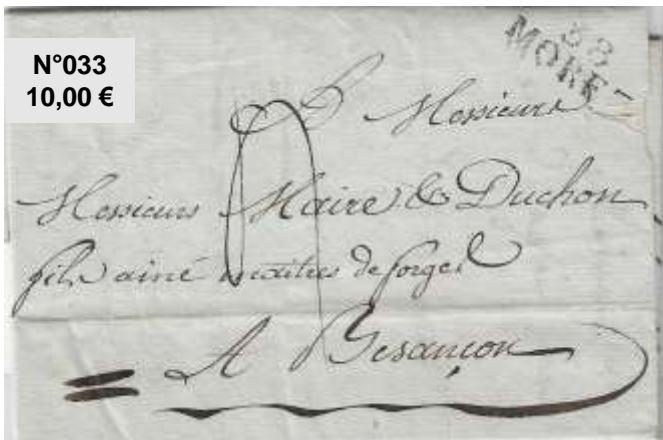 N°033
10,00 €
38
MOREZ
A Messieurs
Messieurs Maire & Duchon
fils ainé maitres de forges
A Besançon